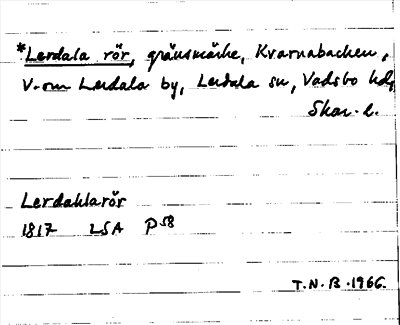 *Lerdala rör, gränsmärke, Kvarnabacken,
V. om Lerdala by, Lerdala sn, Vadsbo hd,
Skar. l.
Lerdahlarör
1817 LSA P58
T.N.B. 1966.